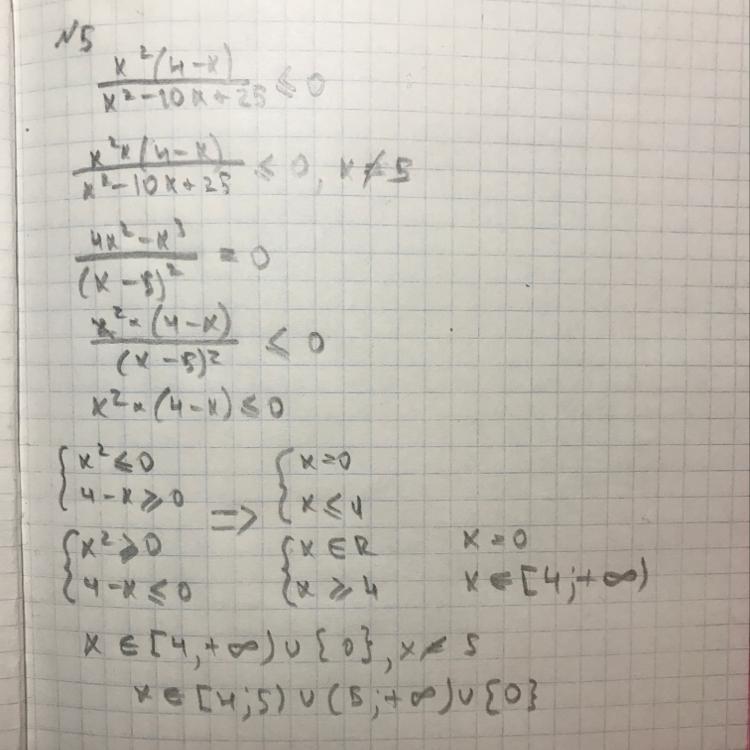 N5
x²(4-x)/x²-10x+25 ≤ 0
x²×(4-x)/x²-10x+25 ≤ 0, x≠5
4x²-x³/(x-5)² = 0
x²×(4-x)/(x-5)² ≤ 0
x²×(4-x)≤0
{x²≤0 {x=0
{4-x≥0 => {x≤4
{x²≥0 {x∈R x=0
{4-x≤0 {x≥4 x∈[4;+∞)
x∈[4,+∞)∪{0}, x≠5
x∈[4;5)∪(5;+∞)∪{0}